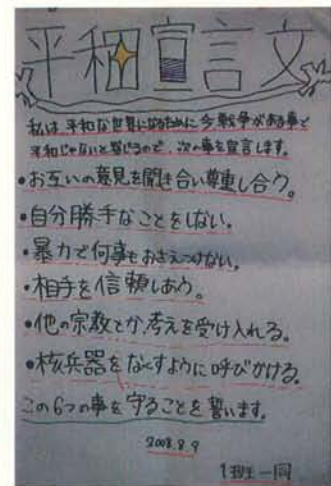 平和宣言文
私は、平和な世界になるために今、戦争がある事と
平和じゃないと感じるので、次の事を宣言します。
・お互いの意見を聞き合い尊重し合う。
・自分勝手なことをしない。
・暴力で何事もおさえつけない。
・相手を信頼しあう。
・他の宗教とか、考えを受け入れる。
・核兵器をなくすように呼びかける。
この6つの事を守ることを誓います。
2008.8.9
1班一同